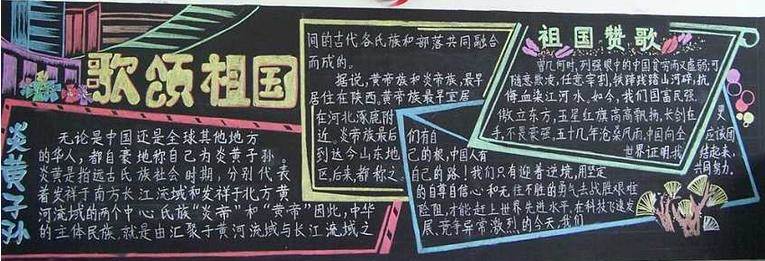 歌颂祖国
炎黄子孙
无论是中国还是全球其他地方
的华人，都自豪地称自己为炎黄子孙。
炎黄是指远古氏族社会时期，分别代表
着发祥于南方长江流域和发祥于北方黄
河流域的两个中心氏族“炎帝”和“黄帝”因此，中华
的立体民族，就是由汇聚于黄河流域与长江流域之
间的古代各氏族和部落共同融合
而成的。
据说，黄帝族和炎帝族，最早
居住在陕西。黄帝族最早定居
在河北涿鹿附
近。炎帝族最后
到达今山东地
区后来，都称之
祖国赞歌
曾几何时，列强眼中的中国贫穷而又虚弱；可
随意欺凌，任意宰割，铁蹄践踏山河碎，抗
俦血染江河水。如今，我们国富民强。
傲立东方，五星红旗高高飘扬，长剑在
手，不畏豪强，五十几年沧桑风雨，中国向全
世界证明，我
们有自
己的根，中国人有
自己的路！我们只有迎着逆境，用坚定
的自尊自信心和无往不胜的勇气去战胜艰难
险阻，才能赶上世界先进水平，在科技飞速发
展、竞争异常激烈的今天，我们
又
应该团
结起来，
共同努力。